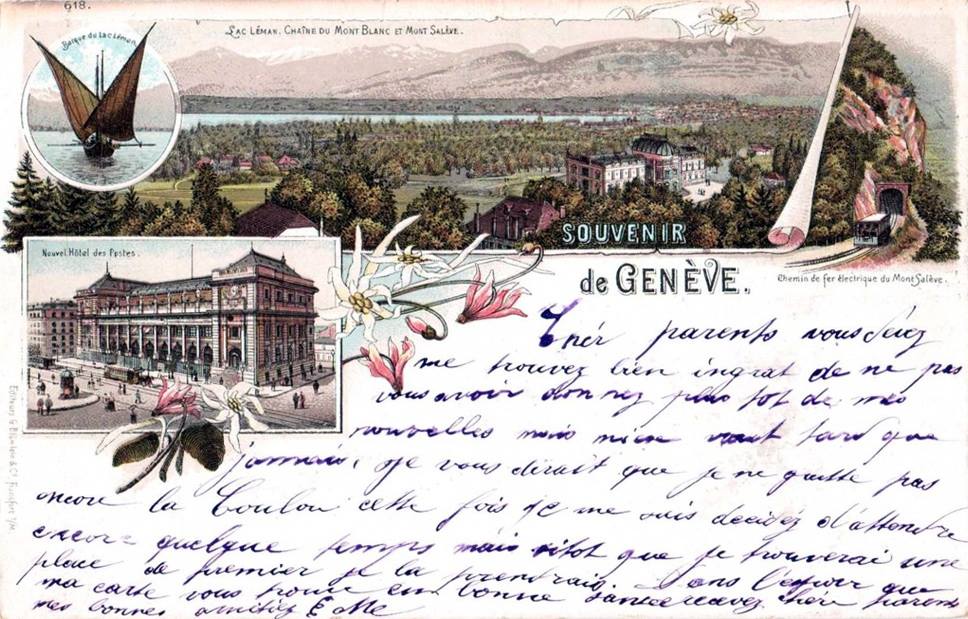 618.
Barque du Lac Léman.
LAC LÉMAN. CHAÎNE DU MONT BLANC ET MONT SALÈVE.
Nouvel Hôtel des Postes.
SOUVENIR
de GENÈVE.
Chemin de fer électrique du Mont Salève.
Cher parents vous
me trouvez bien ingrat de ne pas
vous avoir donnez plus tot de mes
nouvelles mais mieu vaut tard que
jamais, Je vous dirait que je ne quitte pas
encore la cette fois je me suis decidez d'attendre
encore quelque temps mais sitot que je trouverai une
place de premier je la prendrais. Dans l'espoir que
ma carte vous trouve en bonne santée recevez chère parents
mes bonnes amitiez